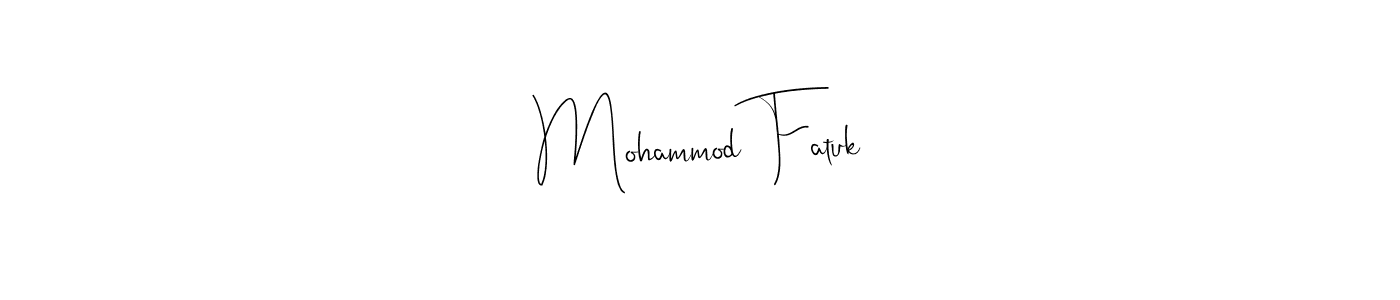 Mohammod Fatuk